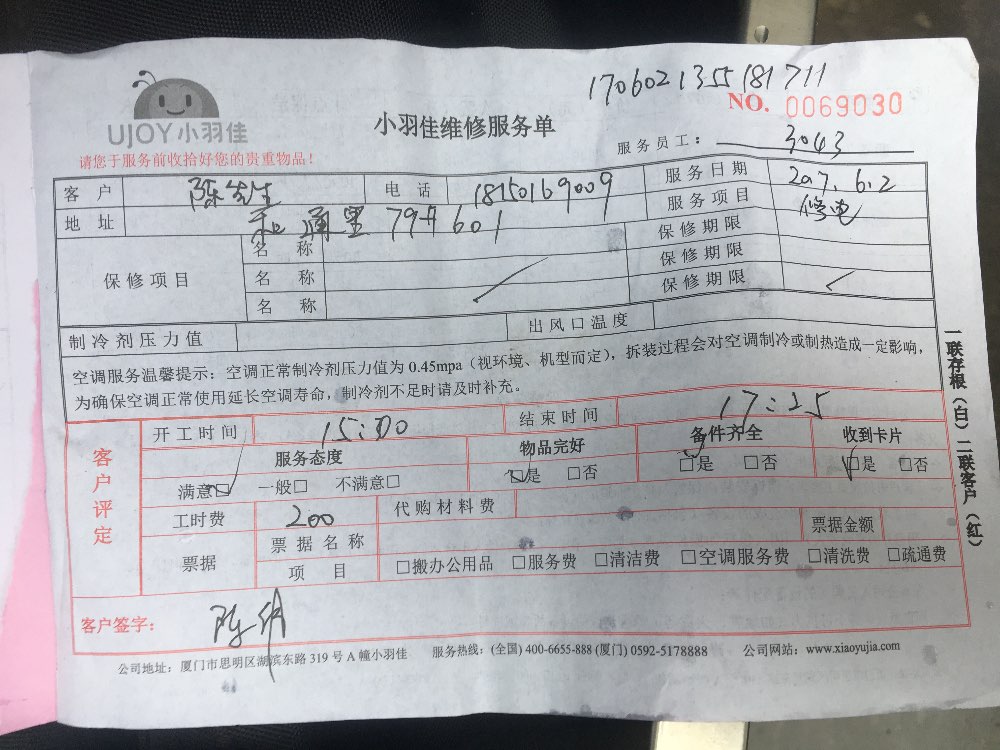 1706021355181711
NO. 0069030
UJOY小羽佳
小羽佳维修服务单
请您于服务前收拾好您的贵重物品!
服务员工: 3043
客户 陈先生 电话 18150169009 服务日期 2017.6.2
地址 和通里79#601 服务项目 修电
保修项目 名称 保修期限
名称 保修期限
名称 保修期限
制冷剂压力值 出风口温度
空调服务温馨提示: 空调正常制冷剂压力值为 0.45mpa (视环境、机型而定), 拆装过程会对空调制冷或制热造成一定影响,
为确保空调正常使用延长空调寿命, 制冷剂不足时请及时补充。
客户评定
开工时间 15:00 结束时间 17:25
服务态度 物品完好 备件齐全 收到卡片
满意□ 一般□ 不满意□ □是 □否 □是 □否 □是 □否
工时费 200 代购材料费
票据 票据名称 票据金额
项目 □搬办公用品 □服务费 □清洁费 □空调服务费 □清洗费 □疏通费
客户签字:
公司地址: 厦门市思明区湖滨东路 319 号 A 幢小羽佳 服务热线: (全国) 400-6655-888 (厦门) 0592-5178888 公司网站: www.xiaoyujia.com
一联存根(白) 二联客户(红)